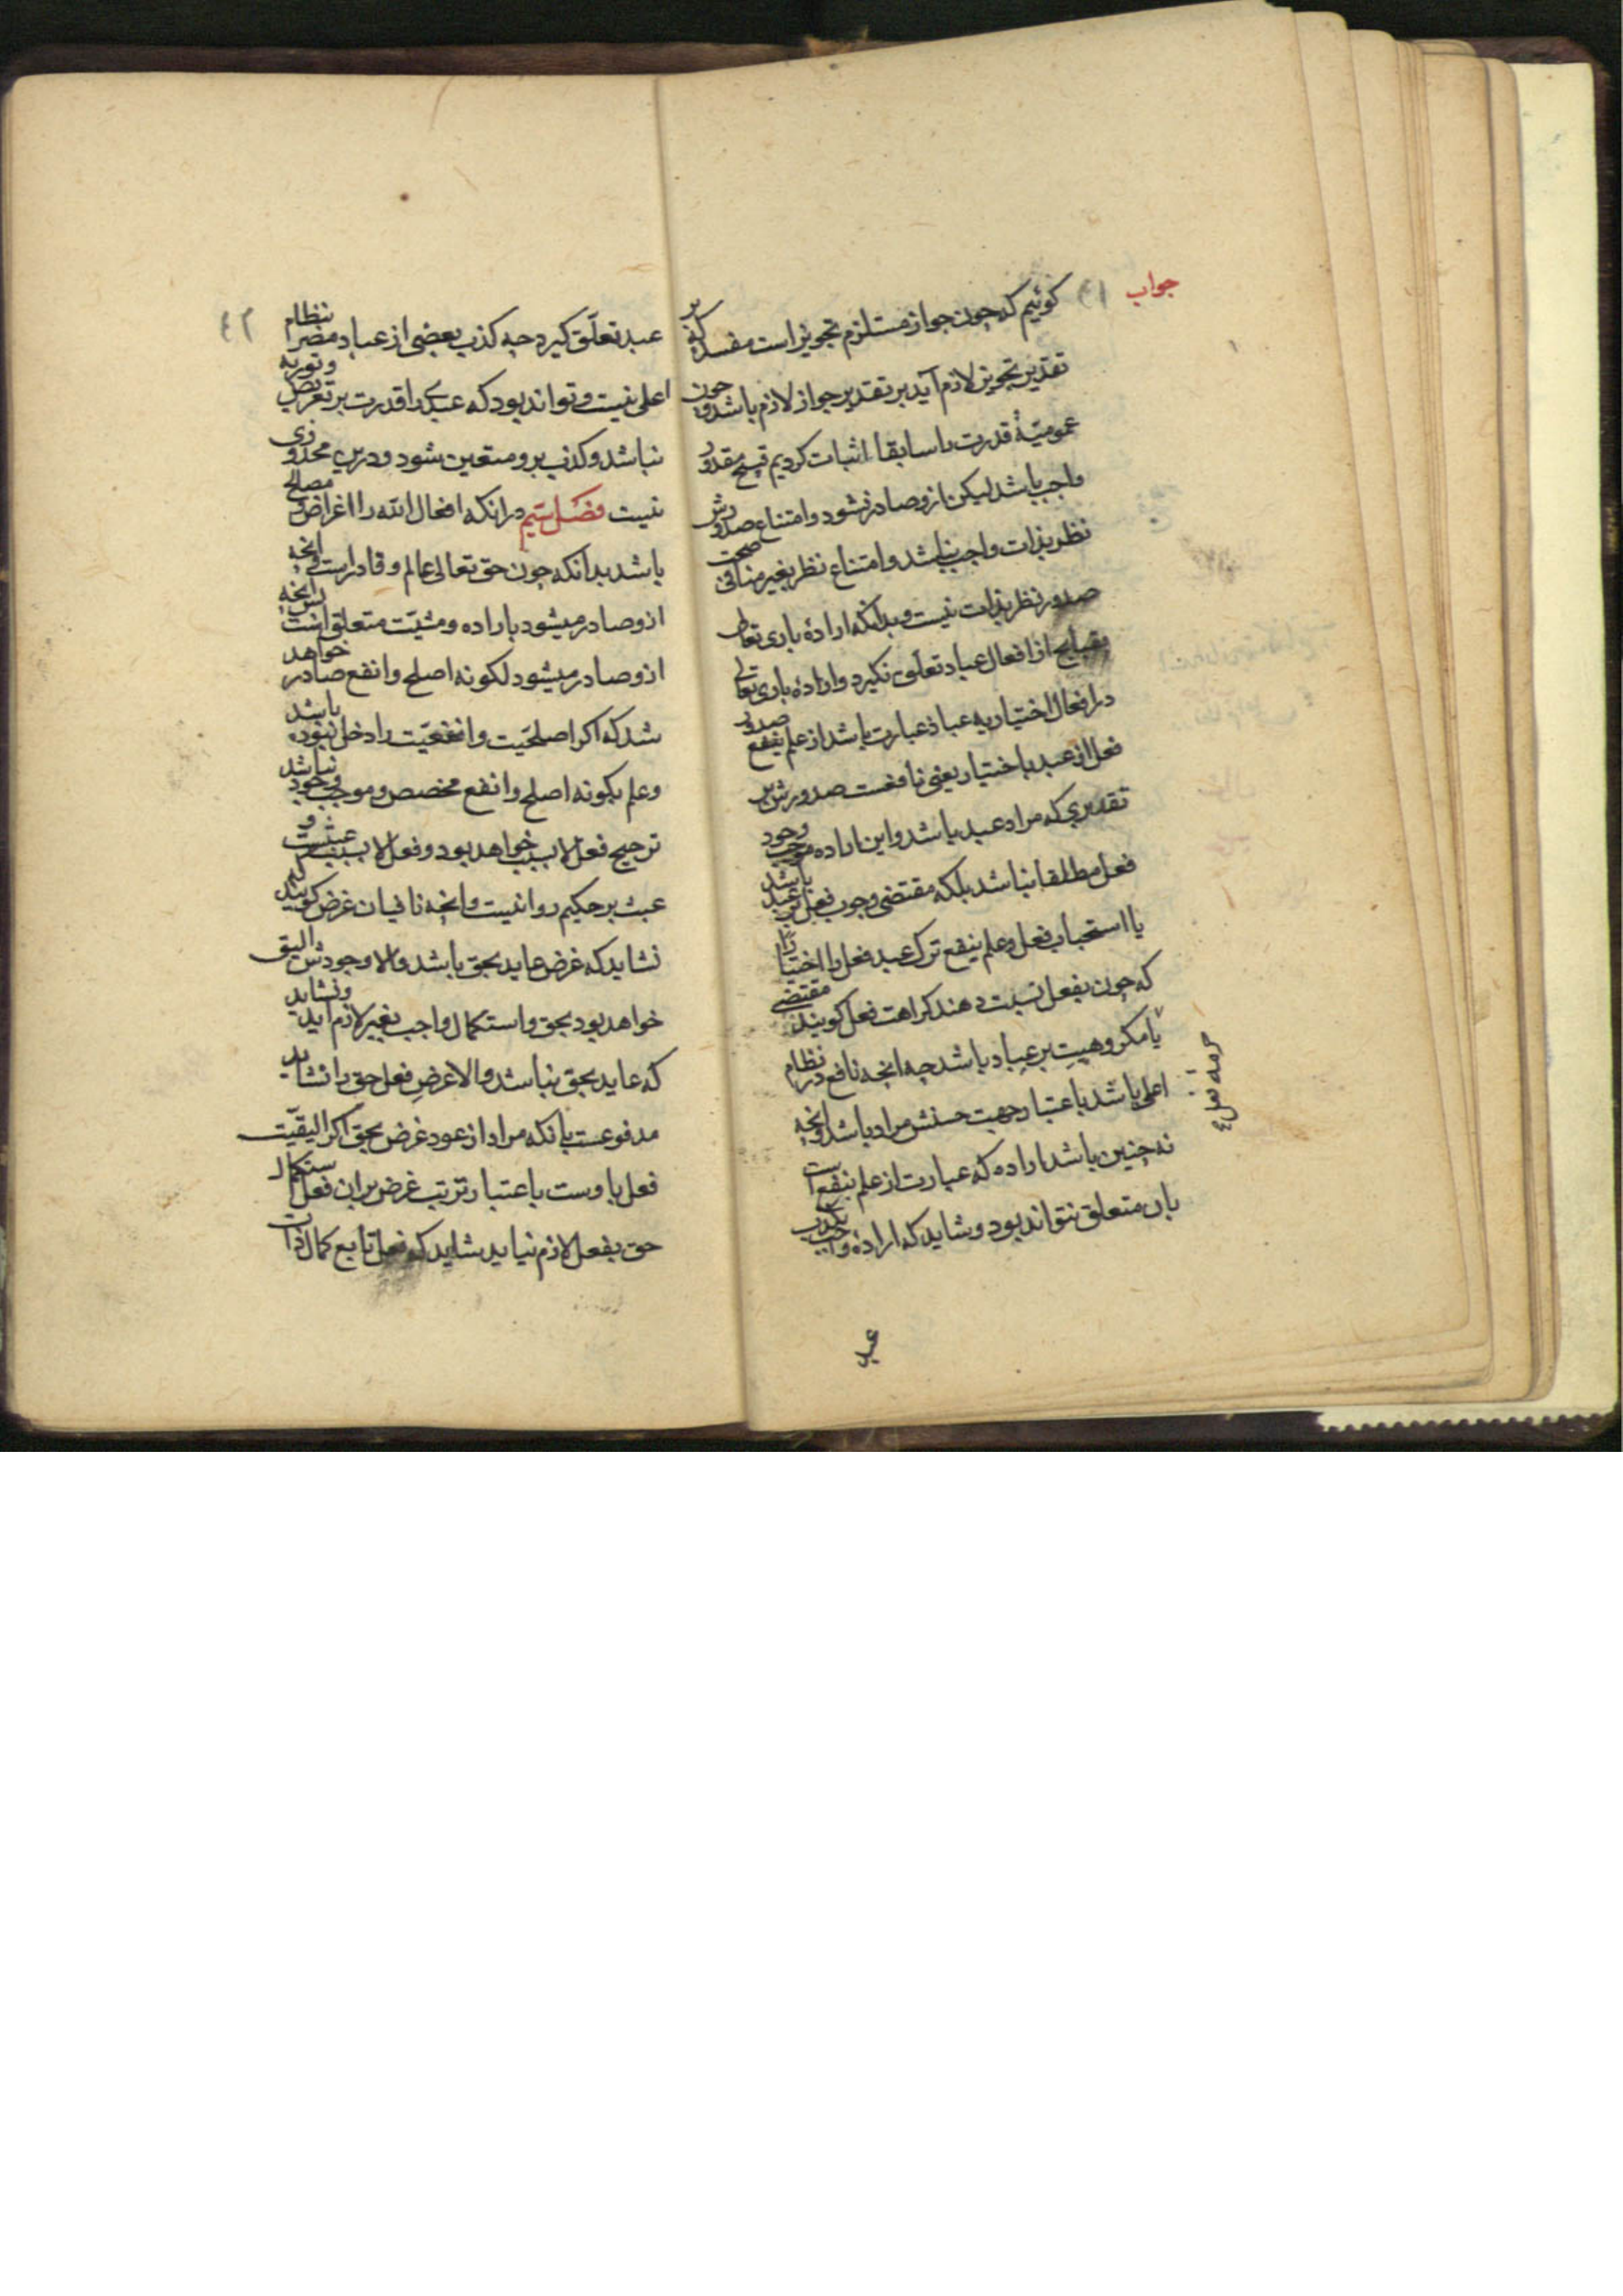 جواب
٤١
کوئیم که چون جواز مستلزم تجویز است مفسده که بر
تقدیر تجویز لازم آید بر تقدیر جواز لازم باشد و چون
عمومیّة قدرت را سابقا اثبات کردیم قبح مقدور
واجب باشد لیکن ازو صادر نشود و امتناع صدورش
نظر بذات واجب نباشد و امتناع نظر بغیر منافی صحت
صدور نظر بذات نیست و بدانکه ارادهٔ باری تعالی
بقبایح از افعال عباد تعلّق نکیرد و ارادهٔ باری تعالی
در افعال اختیاریه عباد عبارت باشد از علم بنفع صدور
فعل از عبد باختیار یعنی نافعست صدورش بر
تقدیری که مراد عبد باشد و این اراده موجب وجود
فعل مطلقا نباشد بلکه مقتضی وجوب فعل بر عبد باشد
یا استحباب فعل و علم بنفع ترک عبد فعل را اختیارًا
که چون بفعل نسبت دهند کراهت فعل کویند مقتضی
یا مکروهیت بر عباد باشد چه انچه نافع در نظام
اعلی باشد باعتبار جهت حسنش مراد باشد و انچه
نه چنین باشد اراده که عبارت از علم بنفع است
بان متعلق نتواند بود و شاید که ارادهٔ واجب بکذب
حرمة فعل
عبد
٤٢
عبد تعلّق کیرد چه کذب بعضی از عباد مضر نظام
اعلی نیست و تواند بود که عبدی را قدرت بر تعریض و توریه
نباشد و کذب برو متعین شود و درین محذوری
نیست فصل سیم در انکه افعال الله را اغراض و مصالح
باشد بدانکه چون حق تعالی عالم و قادر است و انچه
ازو صادر میشود باراده و مشیّت متعلق است پس انچه
ازو صادر میشود لکونه اصلح و انفع صادر خواهد
شد که اکر اصلحیّت و انفعیّت را دخل نبوده باشد
و علم بکونه اصلح و انفع مخصص و موجب وجود نباشد
ترجیح فعل لابسبب خواهد بود و فعل لابسبب عبثست و
عبث بر حکیم روا نیست و انچه نافیان غرض کویند که
نشاید که غرض عاید بحق باشد والا وجودش الیق
خواهد بود بحق و استکمال واجب بغیر لازم اید و نشاید
که عاید بحق نباشد والا غرض فعل حق را نشاید
مدفوعست بانکه مراد از عود غرض بحق اکر الیقیّت
فعل باوست باعتبار ترتب غرض بران فعل استکمال
حق بفعل لازم نیاید شاید که فعل تابع کمال ذات